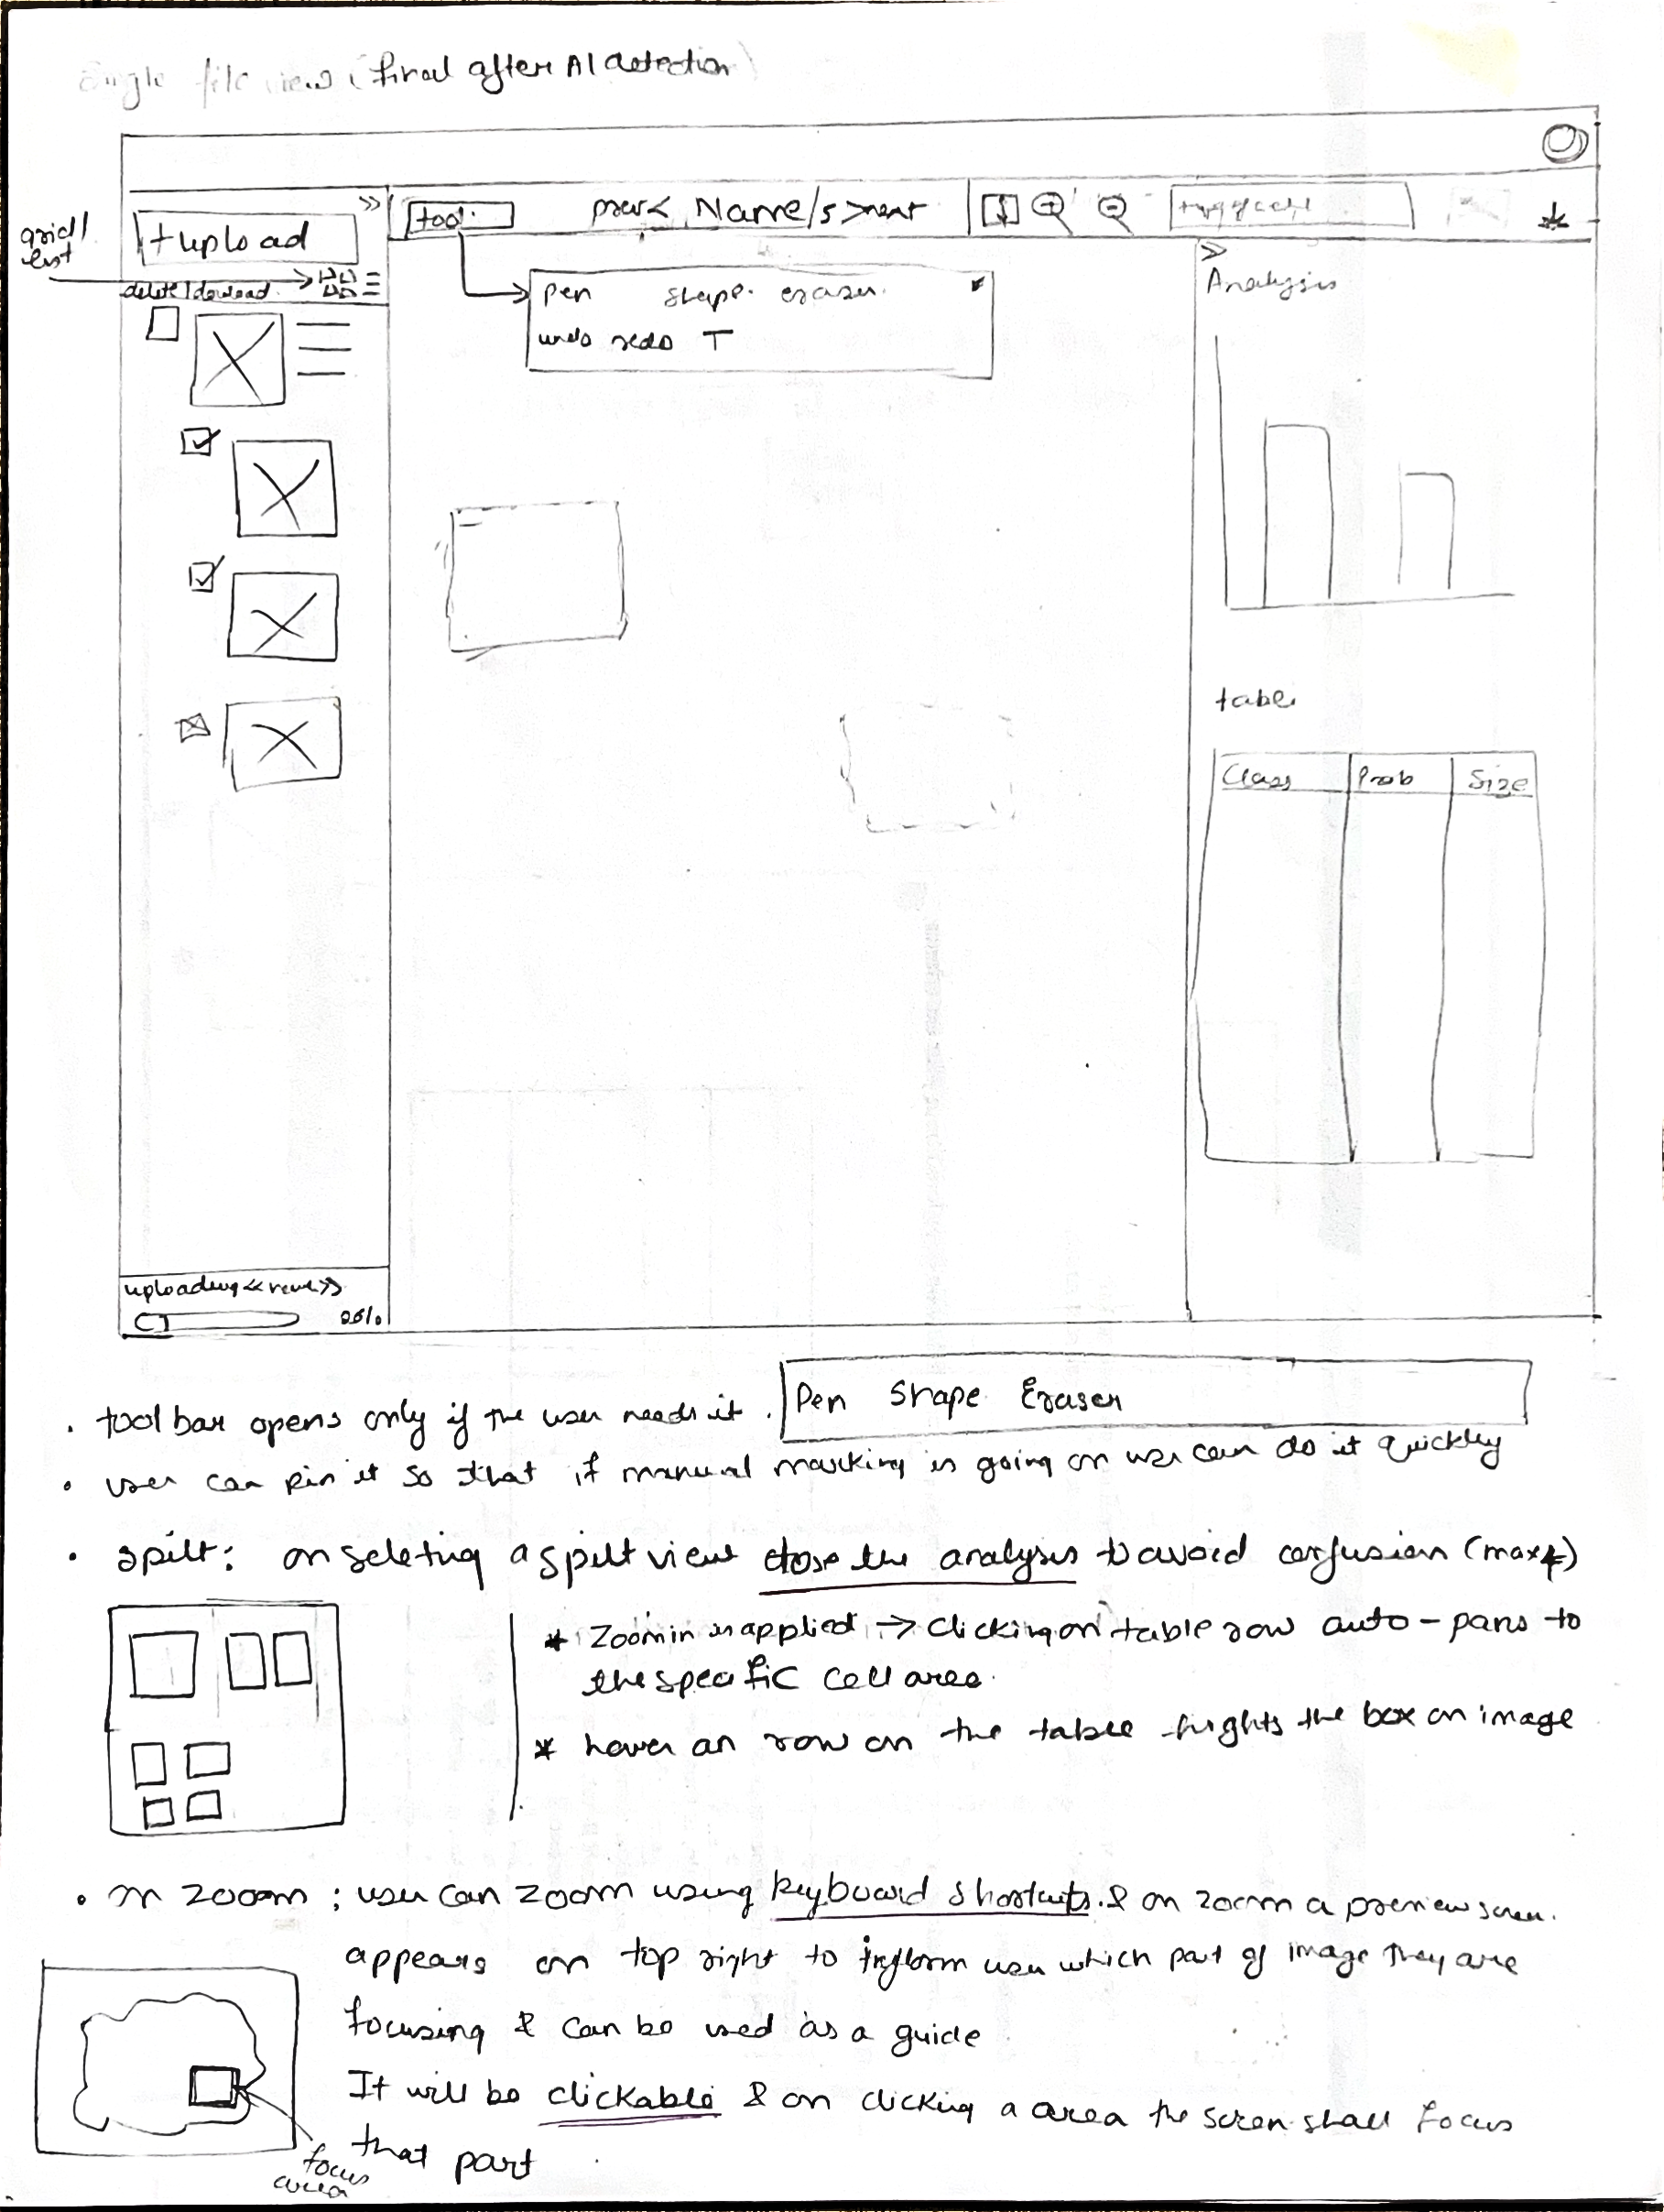 Single file view (final after AI detection)
grid/
list
+ upload
>>
tool
prev < Name/s > next
delete/download
pen shape eraser
undo redo T
>>
Analysis
table
Class Prob Size
uploading << name >>
. tool bar opens only if the user needs it .
Pen Shape Eraser
. user can pin it so that if manual marking is going on user can do it quickly
. spilt: on seleting a spilt view close the analysis to avoid confusion (max 4)
* Zoom in is applied → clicking on table row auto-pans to
the specific cell area.
* hover an row on the table hights the box on image
. zoom ; user can zoom using keyboard shortcuts. & on zoom a preview screen.
appears on top right to inform user which part of image they are
focusing & can be used as a guide
It will be clickable & on clicking a area the screen shall focus
that part
focus
area